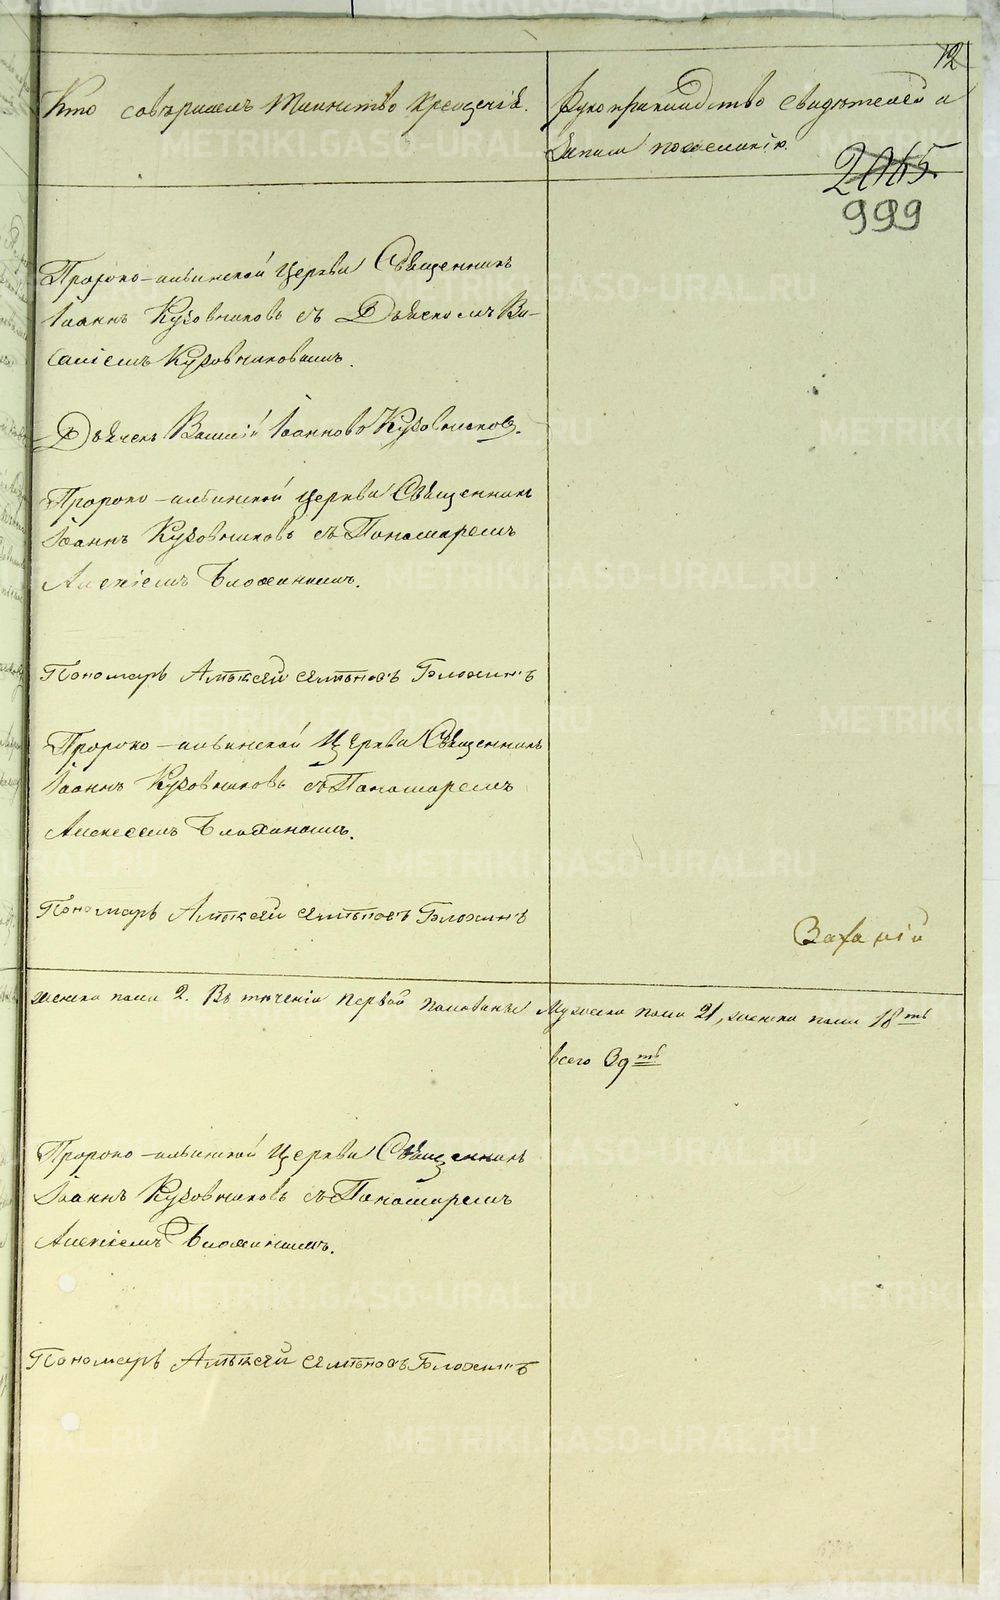 12
Кто совершалъ таинство крещенія.
Рукоприкладство свидѣтелей и
записи по желанію.
2065
999
Пророко-ильинской Церкви Священникъ
Іоаннъ Кузовниковъ съ Дьячкомъ Ва-
силіемъ Кузовниковымъ.
Дьячекъ Василій Іоанновъ Кузовниковъ.
Пророко-ильинской церкви Священникъ
Іоаннъ Кузовниковъ съ Пономаремъ
Алексіемъ Блохинымъ.
Пономарь Алѣксѣй Блохинъ
Пророко-ильинской Церкви Священникъ
Іоаннъ Кузовниковъ съ Пономаремъ
Алексеемъ Блохинымъ.
Пономарь Алѣксѣй Блохинъ
женска пола 2. Въ тѣченіи первой половины Мужеска пола 21, женска пола 18тъ
всего 39тъ
Пророко-ильинской Церкви Священникъ
Іоаннъ Кузовниковъ съ Пономаремъ
Алексіемъ Блохинымъ.
Пономарь Алѣксѣй Блохинъ
METRIKI.GASO-URAL.RU